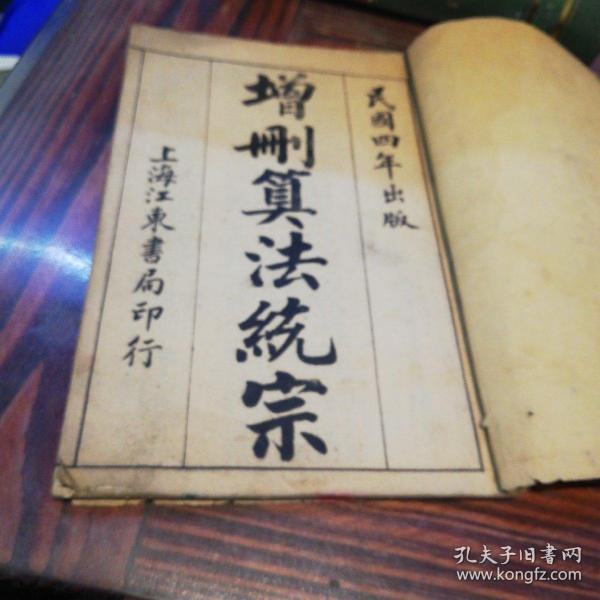 民國四年出版
增刪算法統宗
上海江東書局印行
孔夫子旧書网
www.kongfz.com